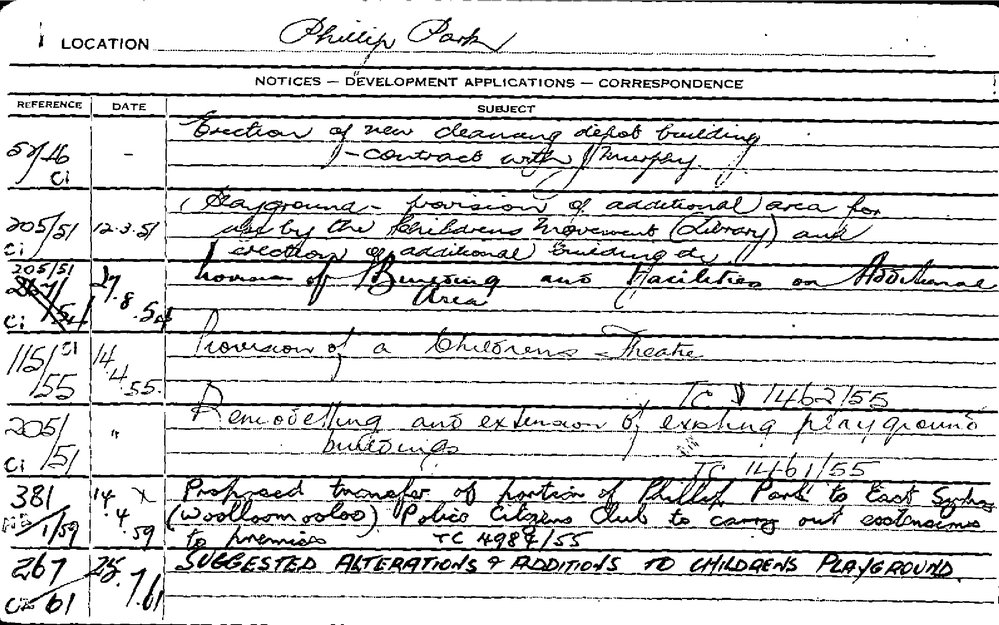 LOCATION Phillip Park
NOTICES — DEVELOPMENT APPLICATIONS — CORRESPONDENCE
REFERENCE DATE SUBJECT
Erection of new cleansing depot building
57/46 - - contract with J Murphy.
Ci
Playground - provision of additional area for
205/51 12.3.51 use by the Childrens Movement (Library) and
Ci erection of additional building etc
205/51 27 Provision of Building and Facilities on Additional
8 Area
Ci 54
115/55 Ci 14 Provision of a Childrens Theatre
4
55. TC 1462/55
Remodelling and extension of existing playground
205/51 " buildings
Ci TC 1461/55
381 14 X Proposed transfer of portion of Phillip Park to East Sydney
1/59 4 (Woolloomooloo) Police Citizens Club to carry out extensions
59 to premises TC 4989/55
267 25 SUGGESTED ALTERATIONS & ADDITIONS TO CHILDRENS PLAYGROUND.
61 7.61